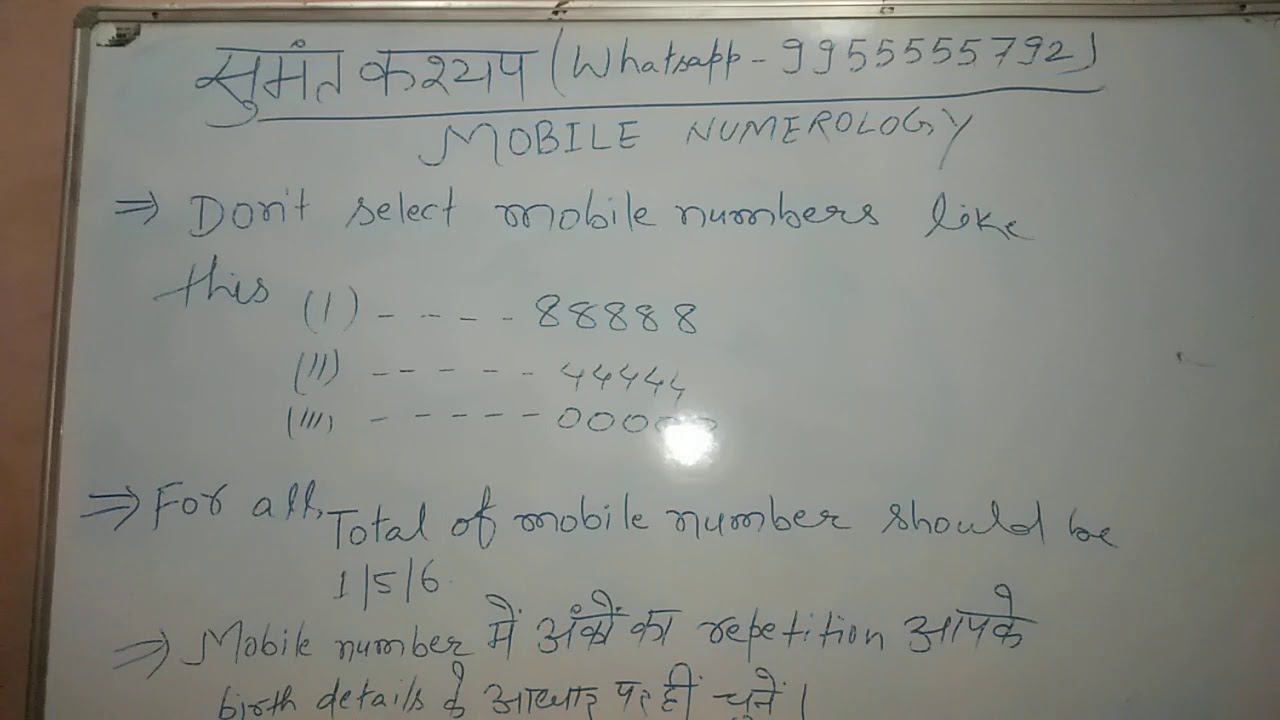 सुमंत कश्यप (Whatsapp - 9955555792)
MOBILE NUMEROLOGY
⇒ Don't select mobile numbers like
this (I) - - - - - 88888
(II) - - - - - 44444
(III) - - - - - 00000
⇒ For all, Total of mobile number should be
1/5/6
⇒ Mobile number में अंकों का repetition आपके
birth details के आधार पर हीं चुनें।